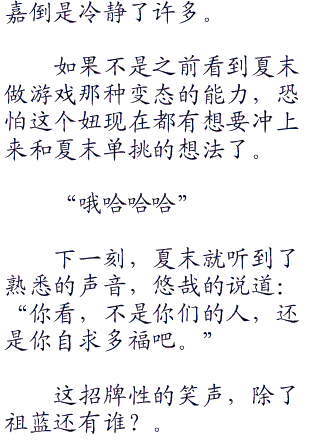 嘉倒是冷静了许多。
如果不是之前看到夏末
做游戏那种变态的能力，恐
怕这个妞现在都有想要冲上
来和夏末单挑的想法了。
“哦哈哈哈”
下一刻，夏末就听到了
熟悉的声音，悠哉的说道：
“你看，不是你们的人，还
是你自求多福吧。”
这招牌性的笑声，除了
祖蓝还有谁？。